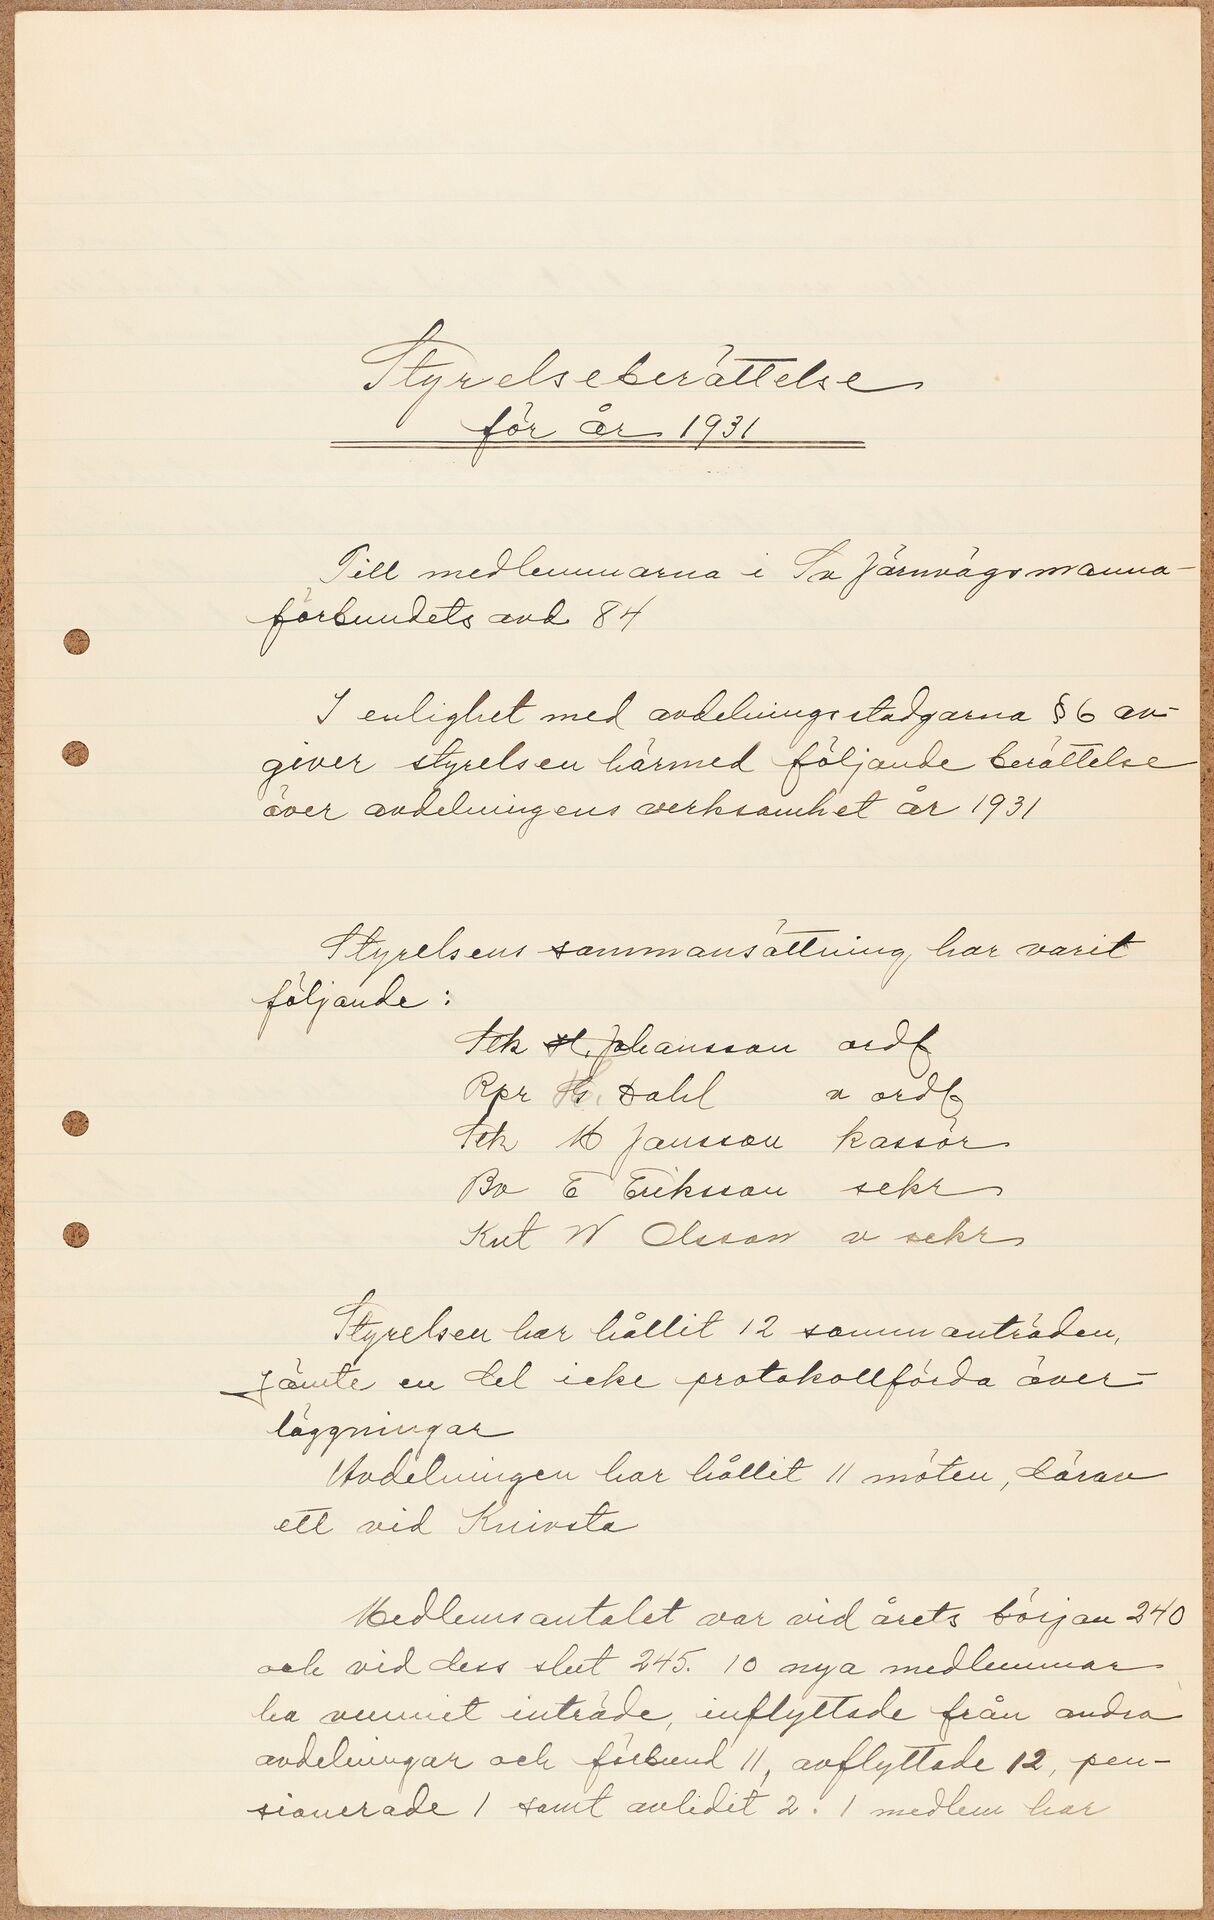 Styrelseberättelse
för år 1931
Till medlemmarna i Sv Järnvägsmanna-
förbundets avd 84
I enlighet med avdelningsstadgarna § 6 av-
giver styrelsen härmed följande berättelse
över avdelningens verksamhet år 1931
Styrelsens sammansättning har varit
följande:
Stk H. Johansson ordf
Rpr G. Dahl v ordf
Stk M Jansson kassör
Bv E Eriksson sekr
Knt W Olsson v sekr
Styrelsen har hållit 12 sammanträden,
jämte en del icke protokollförda över-
läggningar
Avdelningen har hållit 11 möten, därav
ett vid Knivsta
Medlemsantalet var vid årets början 240
och vid dess slut 245. 10 nya medlemmar
ha vunnit inträde, inflyttade från andra
avdelningar och förbund 11, avflyttade 12, pen-
sionerade 1 samt avlidit 2. 1 medlem har